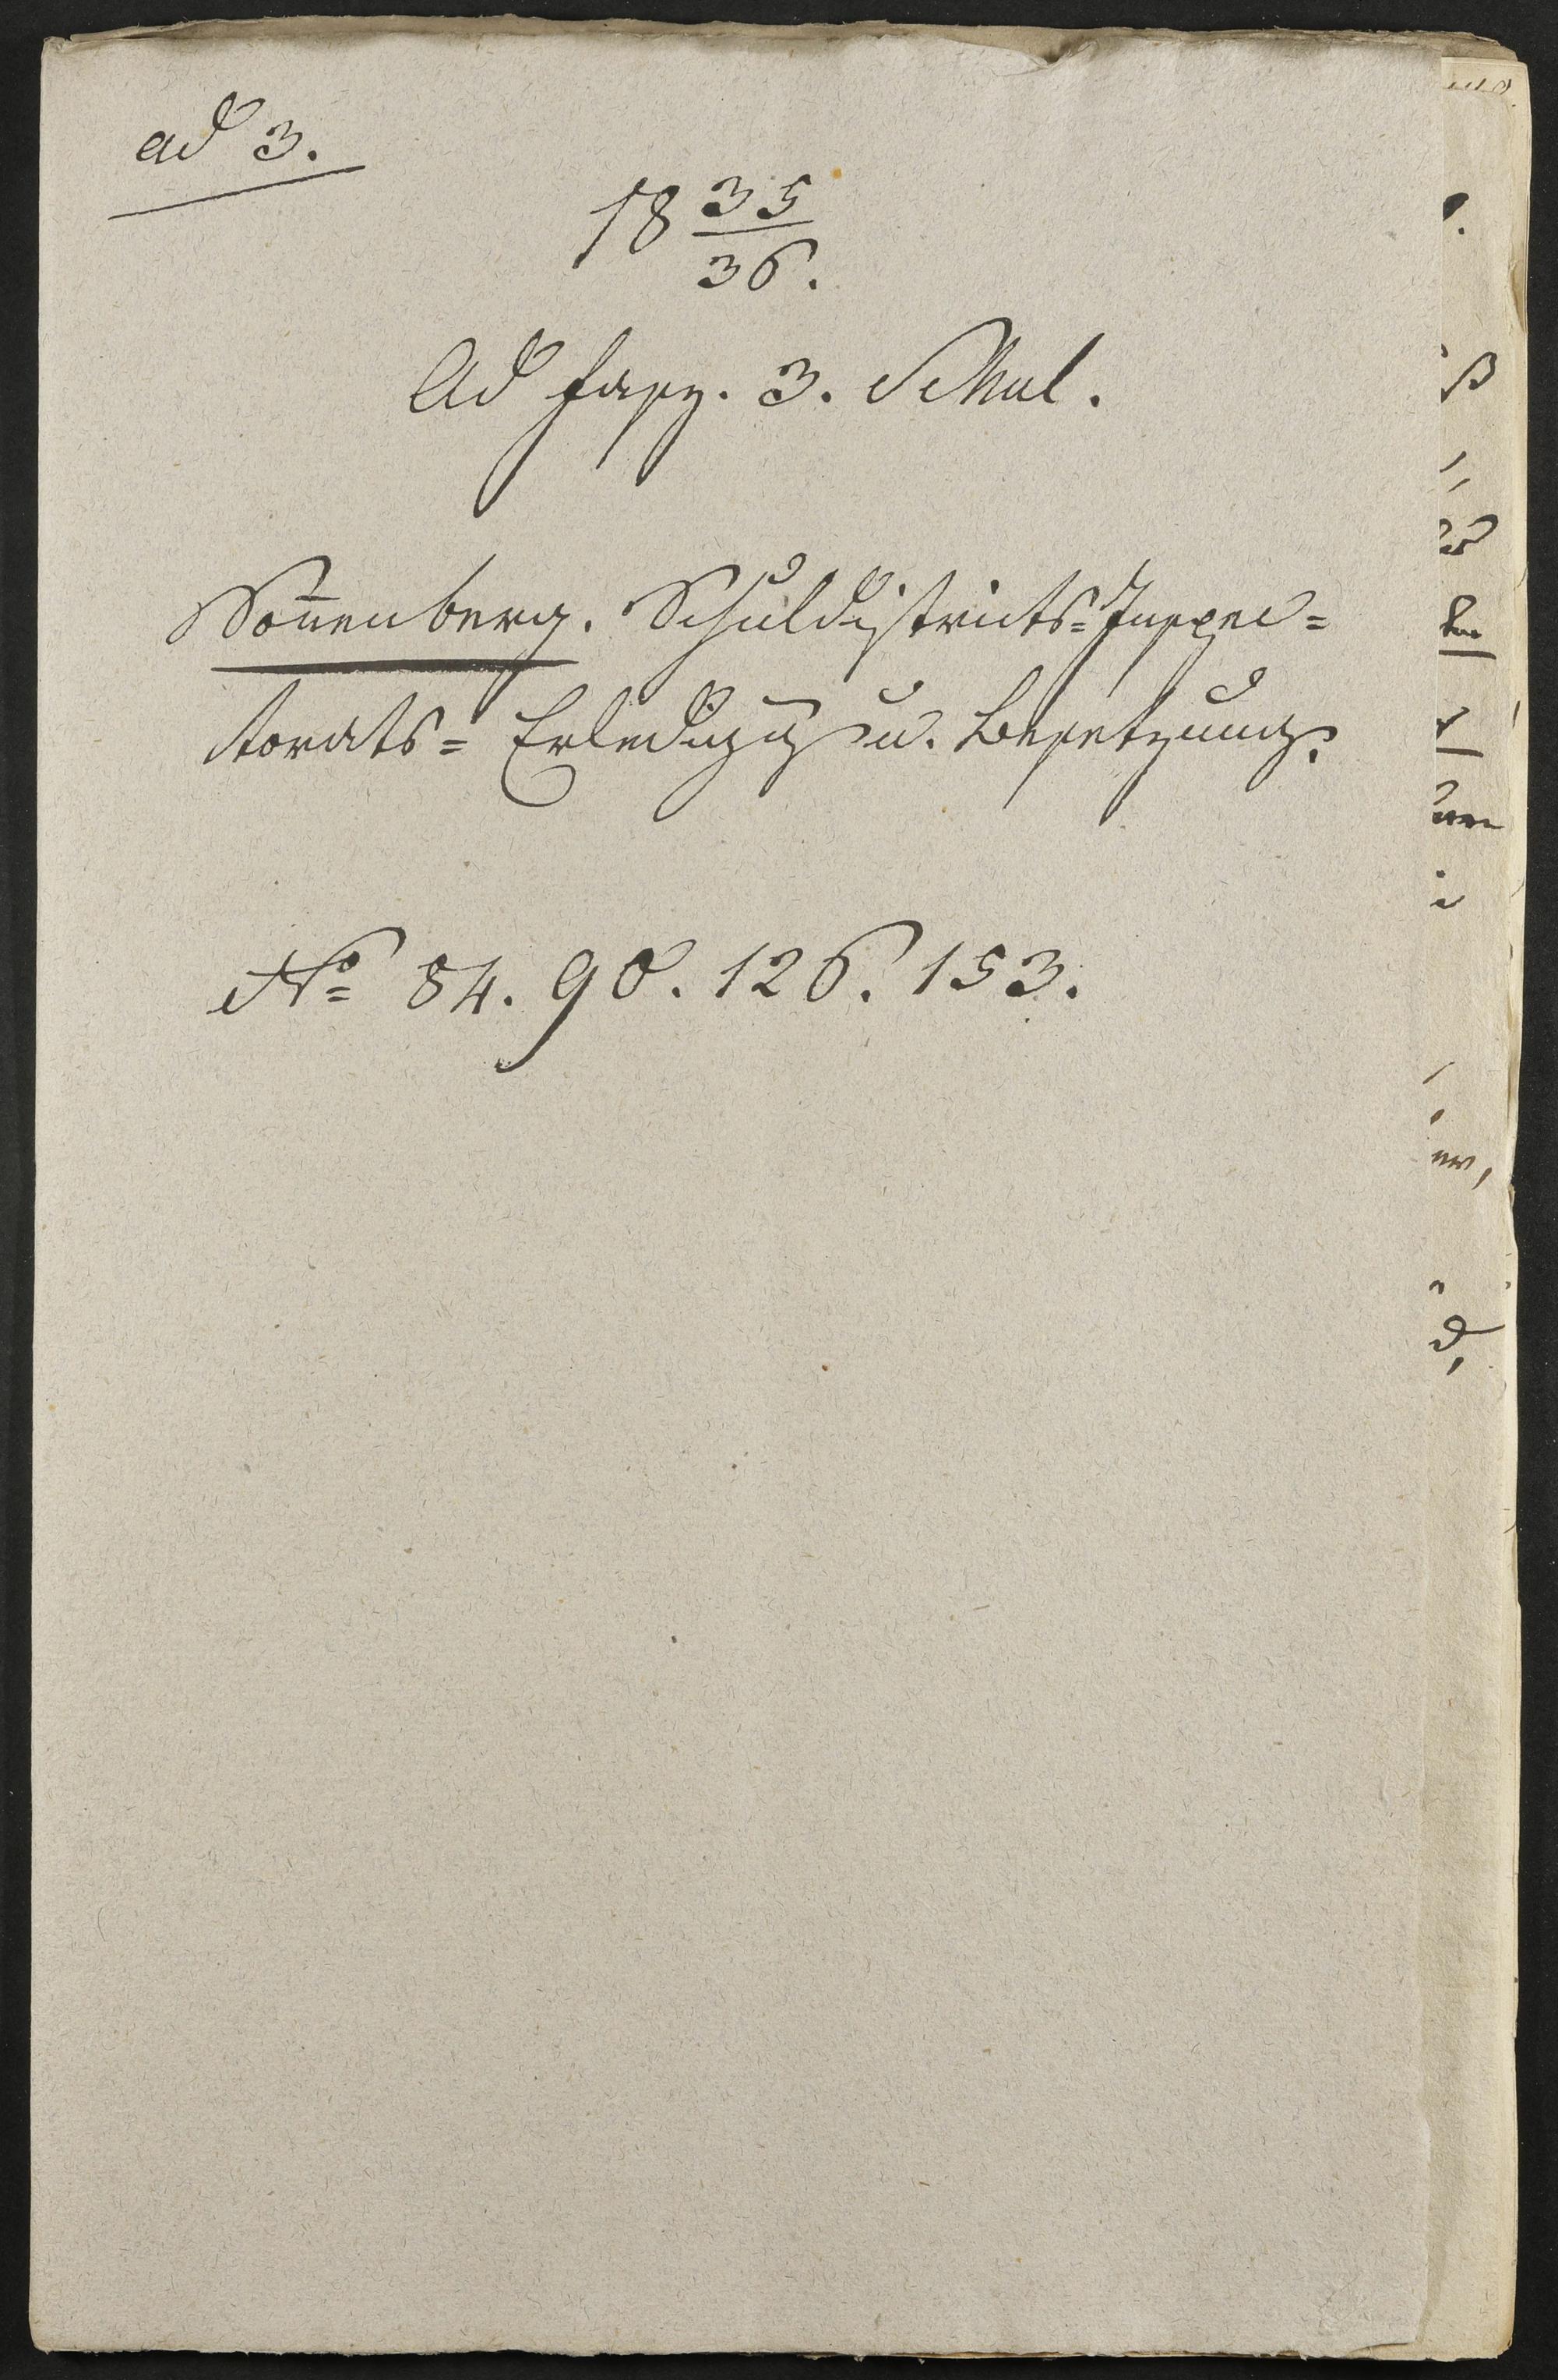 ad 3.
18 35/36.
Ad fasz. 3. Schul.
Soñenberg. Schuldistricts=Inspec=
torats= Erledigũg u. Besetzung.
No 84. 90. 126. 153.